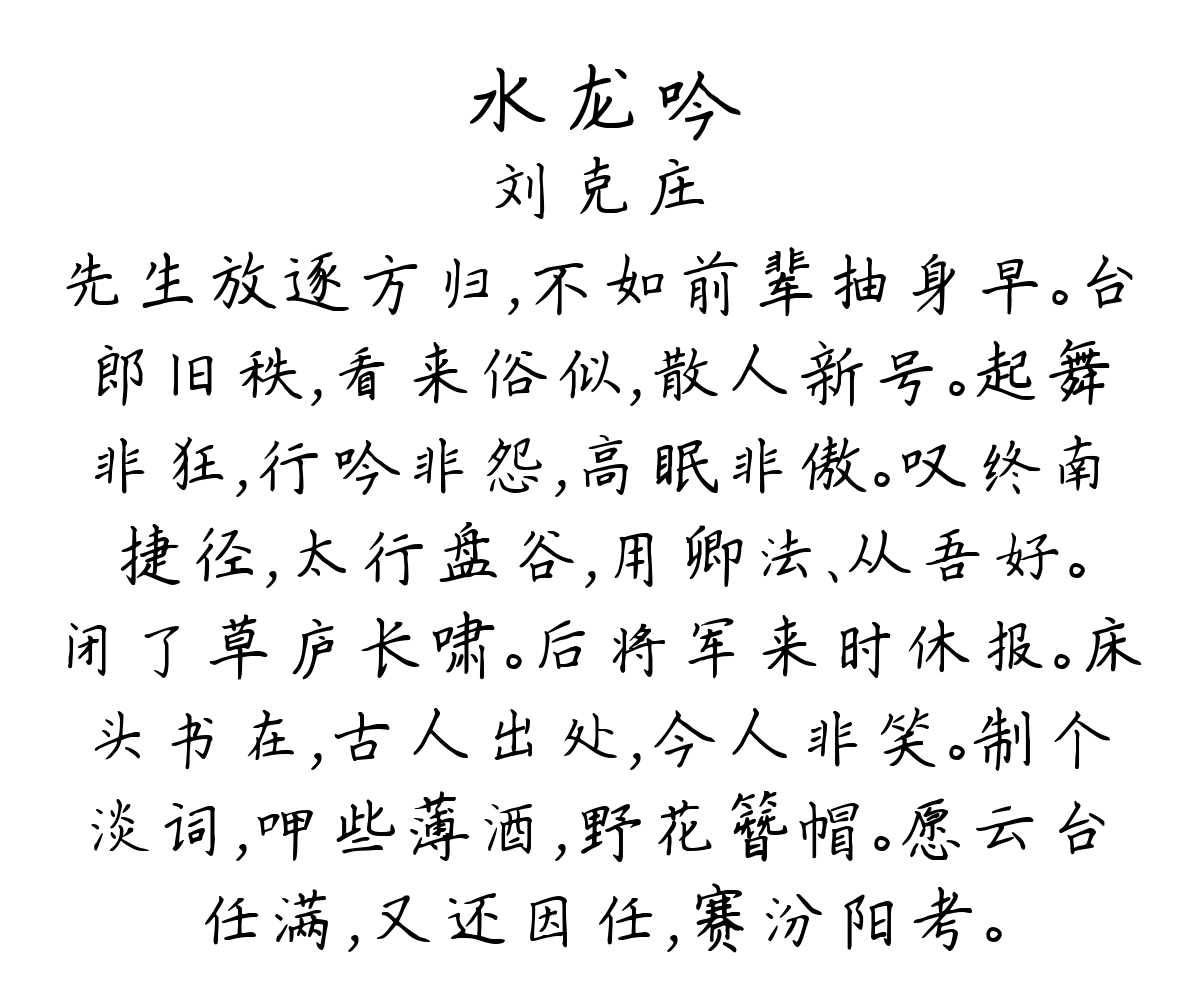 水龙吟
刘克庄
先生放逐方归,不如前辈抽身早。台
郎旧秩,看来俗似,散人新号。起舞
非狂,行吟非怨,高眠非傲。叹终南
捷径,太行盘谷,用卿法、从吾好。
闭了草庐长啸。后将军来时休报。床
头书在,古人出处,今人非笑。制个
淡词,呷些薄酒,野花簪帽。愿云台
任满,又还因任,赛汾阳考。